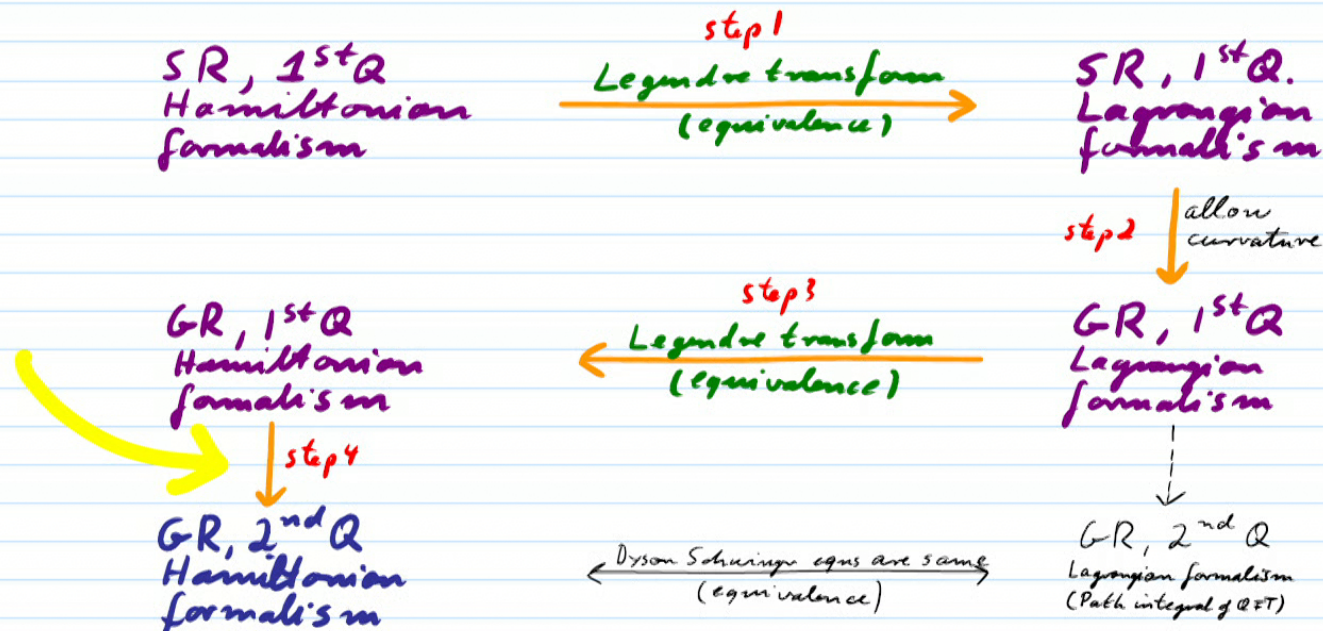 step 1
SR, 1st Q
Hamiltonian
formalism
Legendre transform
(equivalence)
SR, 1st Q.
Lagrangian
formalism
step 2
allow
curvature
GR, 1st Q
Hamiltonian
formalism
step 3
Legendre transform
(equivalence)
GR, 1st Q
Lagrangian
formalism
step 4
GR, 2nd Q
Hamiltonian
formalism
Dyson Schwinger eqns are same
(equivalence)
GR, 2nd Q
Lagrangian formalism
(Path integral of QFT)